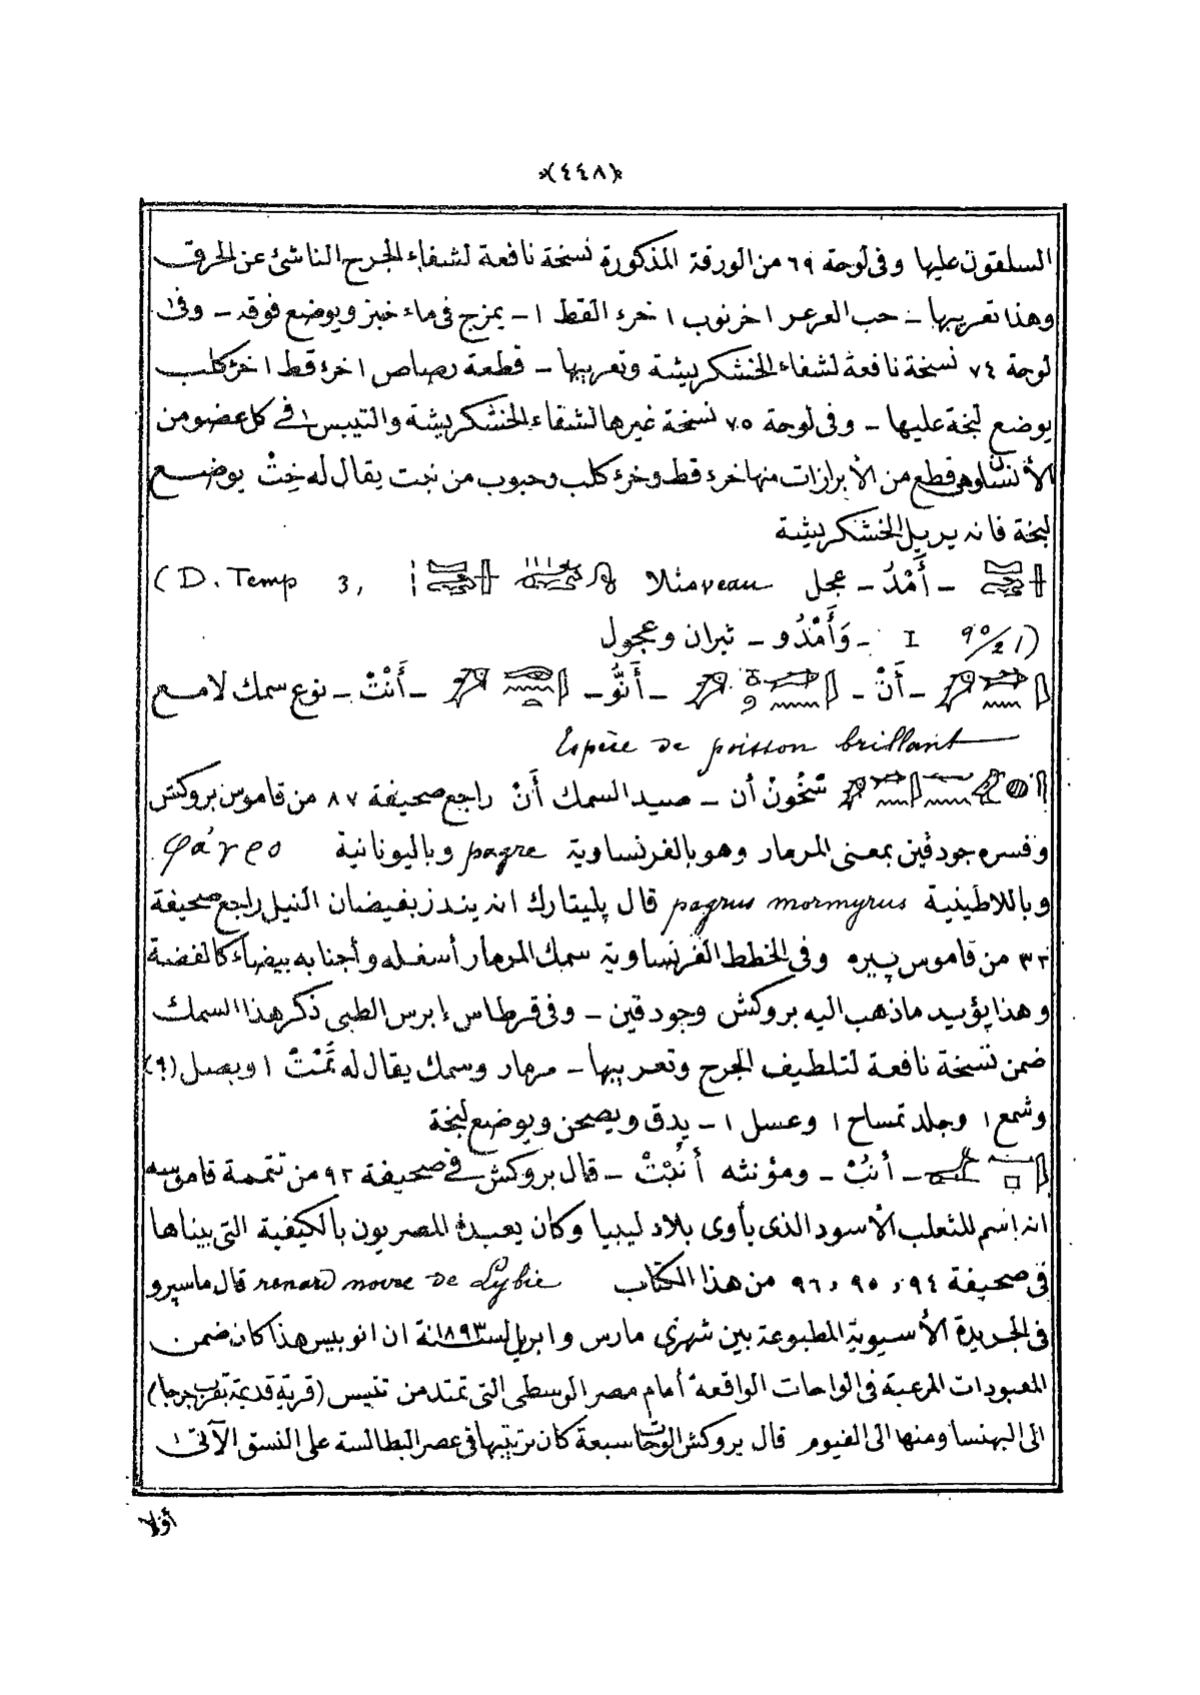 ﴿٤٤٨﴾
السلقون عليها وفى لوحة ٦٩ من الورقة المذكورة نسخة نافعة لشفاء الجرح الناشئ عن الحرق
وهذا تعريبها - حب العرعر ١ خرنوب ١ خرء القط ١ - يمزج فى ماء خبز ويوضع فوقه - وفى
لوحة ٧٤ نسخة نافعة لشفاء الخشكريشة وتعريبها - قطعة رصاص ١ خرء قط ١ خرء كلب
يوضع لبخة عليها - وفى لوحة ٧٥ نسخة غيرها لشفاء الخشكريشة والتيبس فى كل عضو من
الأنسان وهى قطع من الأبرازات منها خرء قط وخرء كلب وحبوب من نبت يقال له خِتْ يوضع
لبخة فانه يزيل الخشكريشة
- أَمْدُ - عجل veau (D. Temp 3,
I ٩٥/٢١) - وَأَمْدُو - ثيران وعجول
- أَنْ - - أَنُّو - - أَنْتْ - نوع سمك لامع
Espèce de poisson brillant
سْخُونْ أن - صيد السمك أَنْ راجع صحيفة ٨٧ من قاموس بروكش
وفسره جودقين بمعنى المرمار وهو بالفرنساوية pagre وباليونانية φάγρο
وباللاطينية pagrus mormyrus قال پليتارك انه ينذر بفيضان النيل راجع صحيفة
٣٣ من قاموس پيره وفى الخطط الفرنساوية سمك المرمار أسفله وأجنابه بيضاء كالفضة
وهذا يؤييد ماذهب اليه بروكش وجودقين - وفى قرطاس إبرس الطبى ذكر هذا السمك
ضمن نسخة نافعة لتلطيف الجرح وتعريبها - مرمار وسمك يقال له تَمْتْ ١ وبصل (؟)
وشمع ١ وجلد تمساح ١ وعسل ١ - يدق ويصحن ويوضع لبخة
- أنبُ - ومؤنثه أنُبْتْ - قال بروكش فى صحيفة ٩٢ من تتمة قاموسه
انه اسم للثعلب الأسود الذى يأوى بلاد ليبيا وكان يعبده المصريون بالكيفية التى بيناها
فى صحيفة ٩٤ و ٩٥ و ٩٦ من هذا الكتاب renard noire de Lybie قال ماسپرو
فى الجريدة الأسيوية المطبوعة بين شهرى مارس وابريل سنة ١٨٩٣ ان انوبيس هذا كان ضمن
المعبودات المرعية فى الواحات الواقعة أمام مصر الوسطى التى تمتد من تنيس (قرية قديمة بقرب جرجا)
الى البهنسا ومنها الى الفيوم قال بروكش الواحات سبعة كان ترتيبها فى عصر البطالسة على النسق الآتى
أوّلا